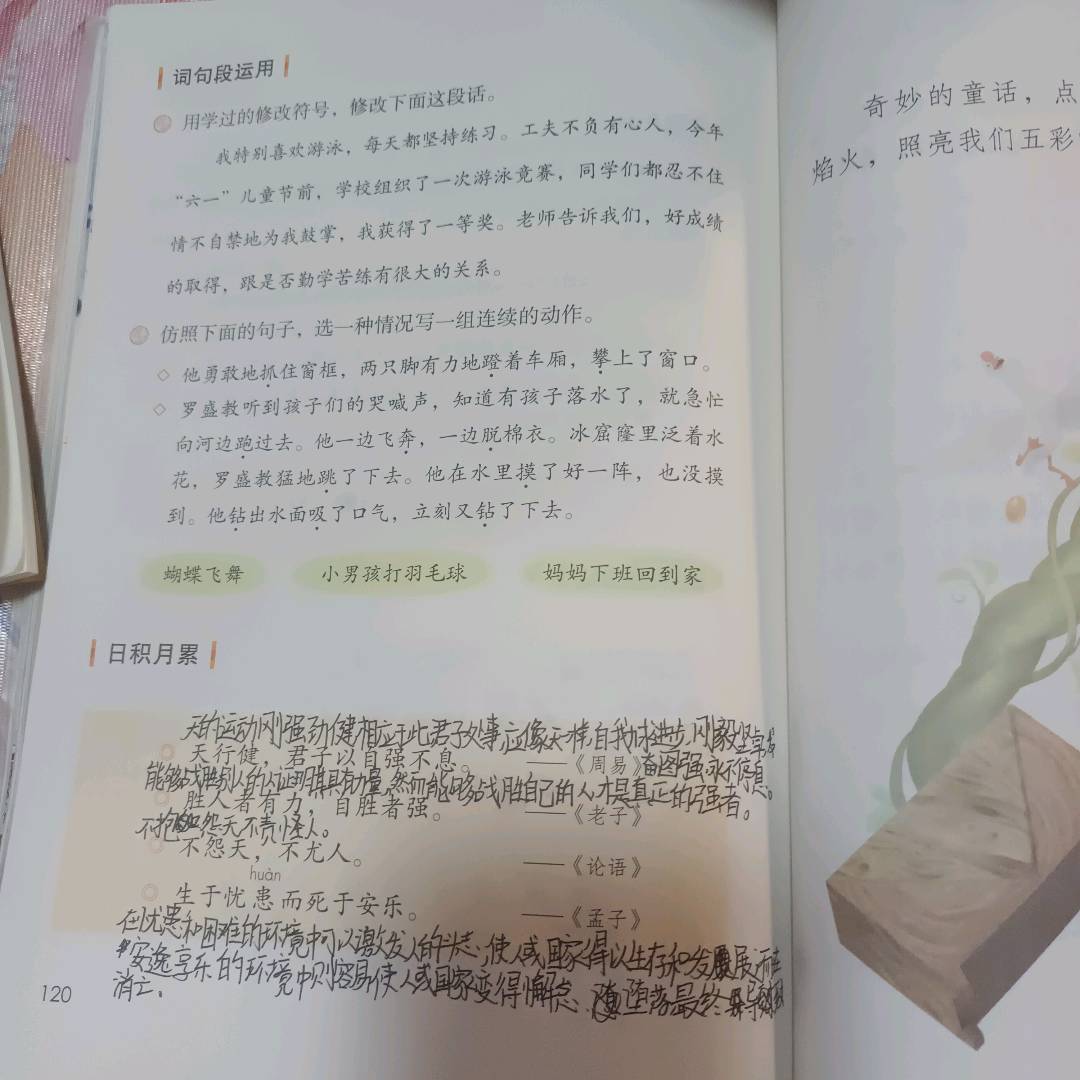 词句段运用
用学过的修改符号，修改下面这段话。
我特别喜欢游泳，每天都坚持练习。工夫不负有心人，今年
“六一”儿童节前，学校组织了一次游泳竞赛，同学们都忍不住
情不自禁地为我鼓掌，我获得了一等奖。老师告诉我们，好成绩
的取得，跟是否勤学苦练有很大的关系。
仿照下面的句子，选一种情况写一组连续的动作。
他勇敢地抓住窗框，两只脚有力地蹬着车厢，攀上了窗口。
罗盛教听到孩子们的哭喊声，知道有孩子落水了，就急忙
向河边跑过去。他一边飞奔，一边脱棉衣。冰窟窿里泛着水
花，罗盛教猛地跳了下去。他在水里摸了好一阵，也没摸
到。他钻出水面吸了口气，立刻又钻了下去。
蝴蝶飞舞 小男孩打羽毛球 妈妈下班回到家
日积月累
天的运动刚强劲健相应于此君子处事应像天一样自我求进步刚毅坚
天行健，君子以自强不息。 ——《周易》
奋图强永不停息。
能够战胜别人的人证明其具有力量,然而能够战胜自己的人才是真正的强者。
胜人者有力，自胜者强。 ——《老子》
不抱怨天不责怪人。
不怨天，不尤人。 ——《论语》
huàn
生于忧患而死于安乐。 ——《孟子》
在忧患和困难的环境中可以激发人的斗志,使人或国家得以生存和发展而在
安逸享乐的环境中则容易使人或国家变得懈怠、堕落最终导致
消亡.
120
奇妙的童话，点
焰火，照亮我们五彩